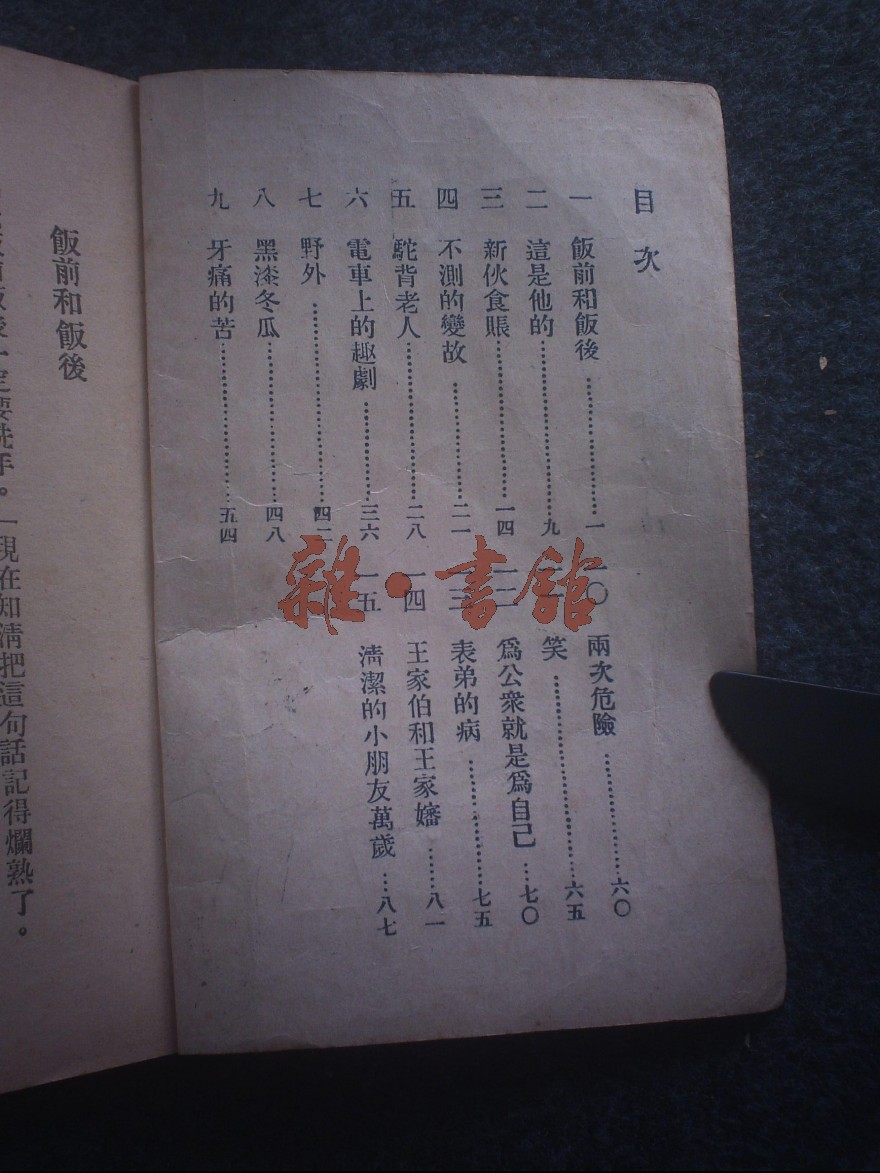 目次
一 飯前和飯後……一
二 這是他的……九
三 新伙食賬……一四
四 不測的變故……二一
五 駝背老人……二八
六 電車上的趣劇……三六
七 野外……四二
八 黑漆冬瓜……四八
九 牙痛的苦……五四
一〇 兩次危險……六〇
一一 笑……六五
一二 爲公衆就是爲自己……七〇
一三 表弟的病……七五
一四 王家伯和王家嬸……八一
一五 清潔的小朋友萬歲……八七
雜·書館
飯前和飯後
飯後一定要洗手。一現在知清把這句話記得爛熟了。